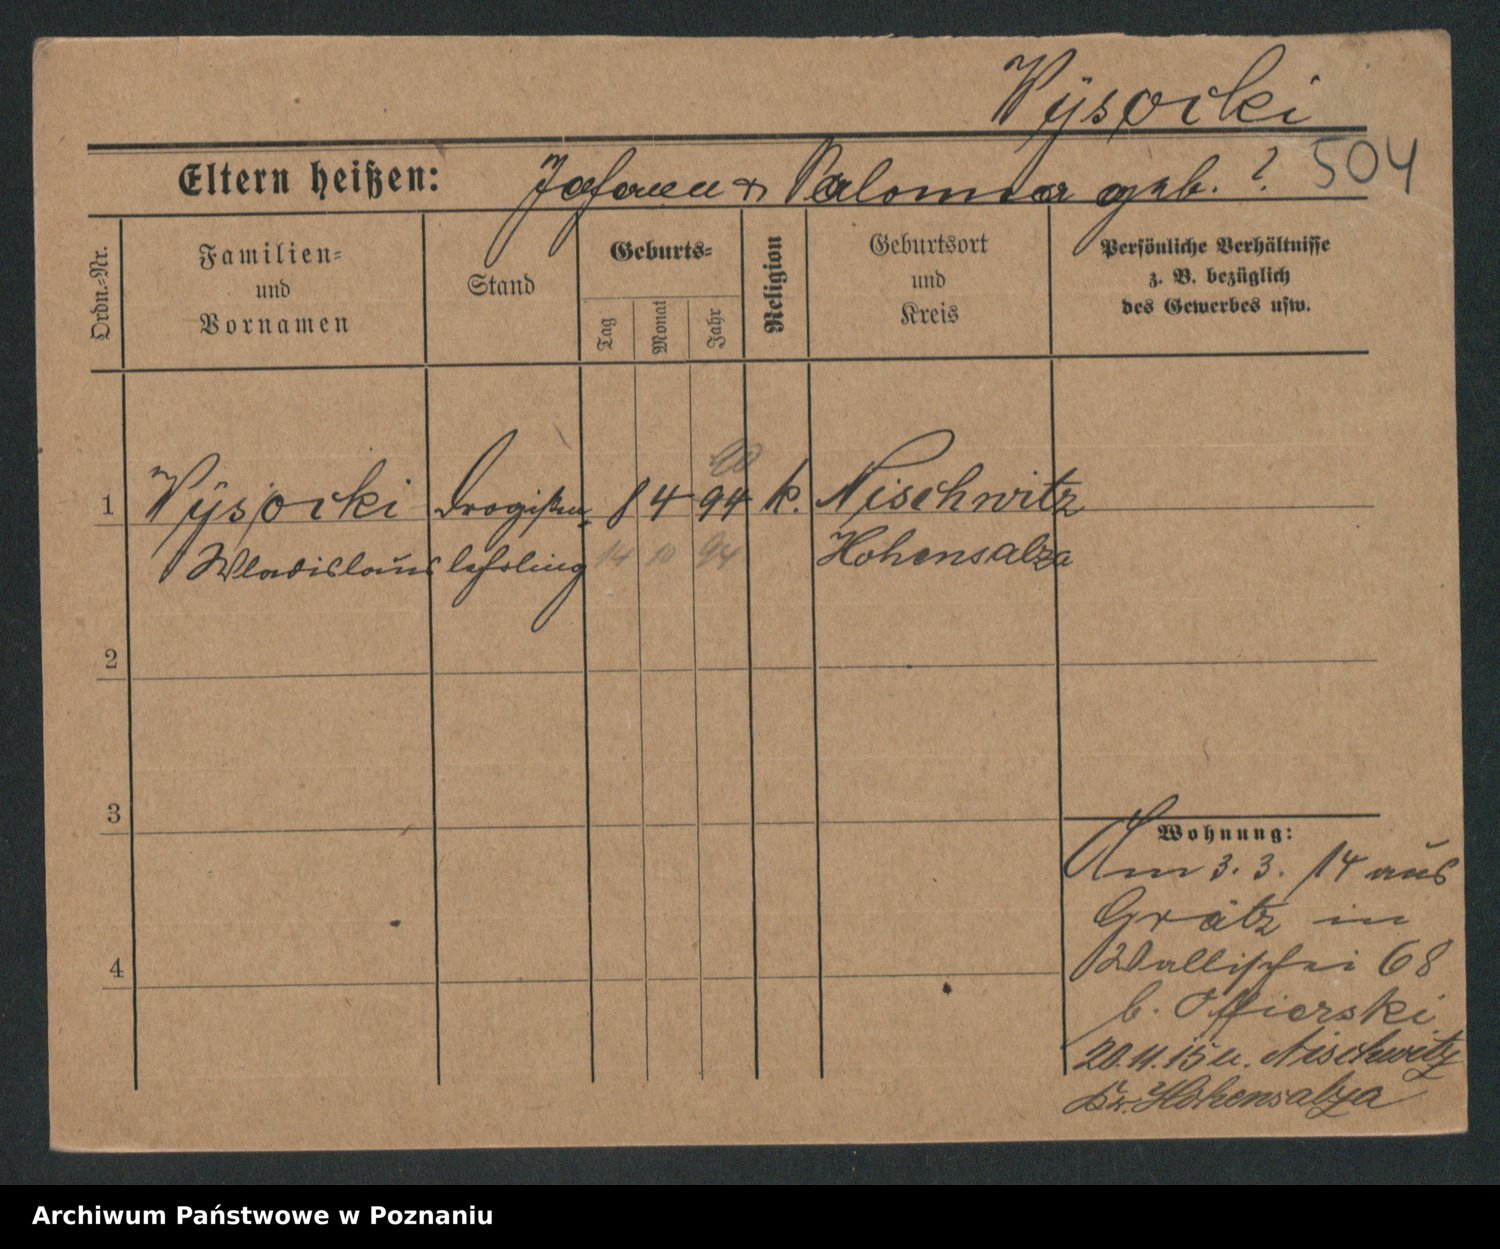 Wysocki
Eltern heißen: Johann & Salomea geb. ?. 504
Ordn.-Nr.
Familien-
und
Vornamen
Stand
Geburts-
Tag
Monat
Jahr
Religion
Geburtsort
und
Kreis
Persönliche Verhältnisse
z. B. bezüglich
des Gewerbes usw.
1 Wysocki Drogisten- 8 4 94 k. Nischwitz
Wladislaus lehrling 14 10 94 Hohensalza
2
3
4
Wohnung:
Am 3. 3. 14 aus
Grätz in
Wallischei 68
b. Offierski
20.11.15 n. Nischwitz
Kr. Hohensalza
Archiwum Państwowe w Poznaniu